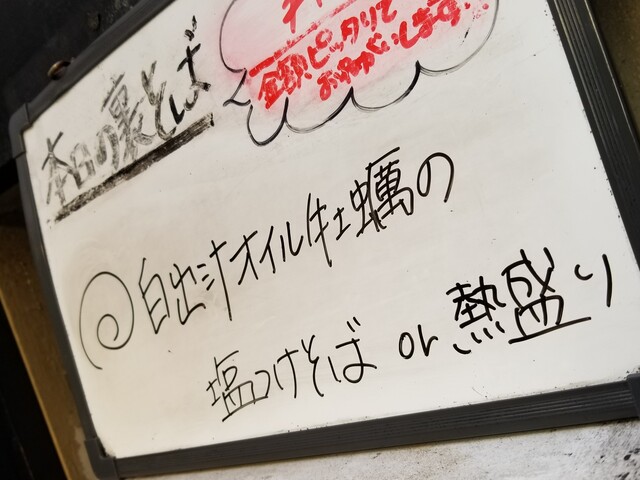 本日の裏そば
金額ピッタリで
お願いします!!
白出汁オイル牡蠣の
塩つけそば or 熱盛り